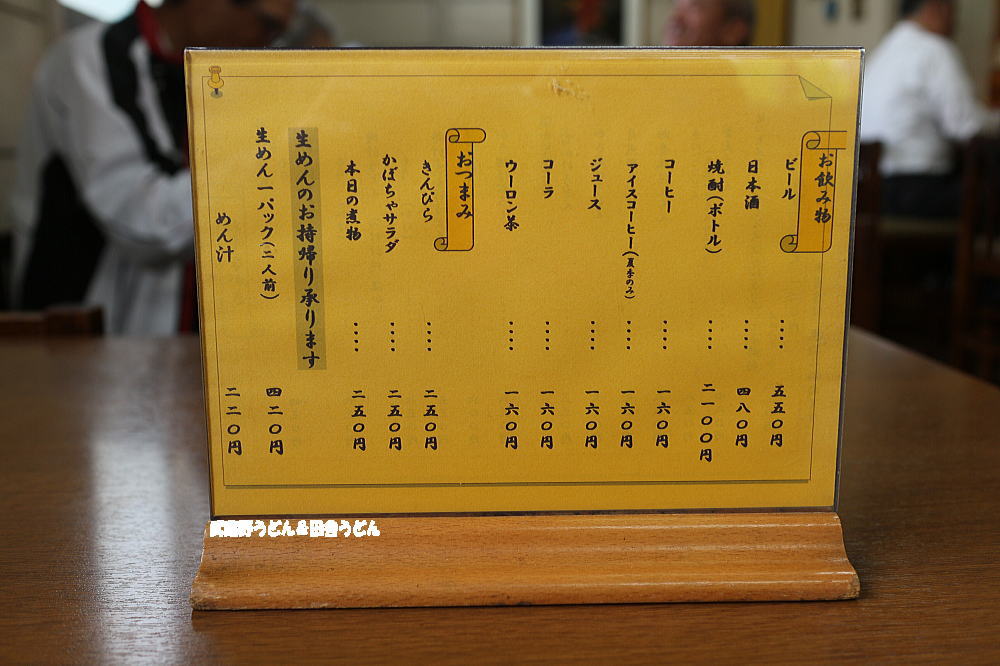 お飲み物
ビール ・・・・ 五五〇円
日本酒 ・・・・ 四八〇円
焼酎(ボトル) ・・・・ 二一〇〇円
コーヒー ・・・・ 一六〇円
アイスコーヒー(夏季のみ) ・・・・ 一六〇円
ジュース ・・・・ 一六〇円
コーラ ・・・・ 一六〇円
ウーロン茶 ・・・・ 一六〇円
おつまみ
きんぴら ・・・・ 二五〇円
かぼちゃサラダ ・・・・ 二五〇円
本日の煮物 ・・・・ 二五〇円
生めんのお持帰り承ります
生めん一パック(二人前) 四二〇円
めん汁 二二〇円
武蔵野うどん&田舎うどん